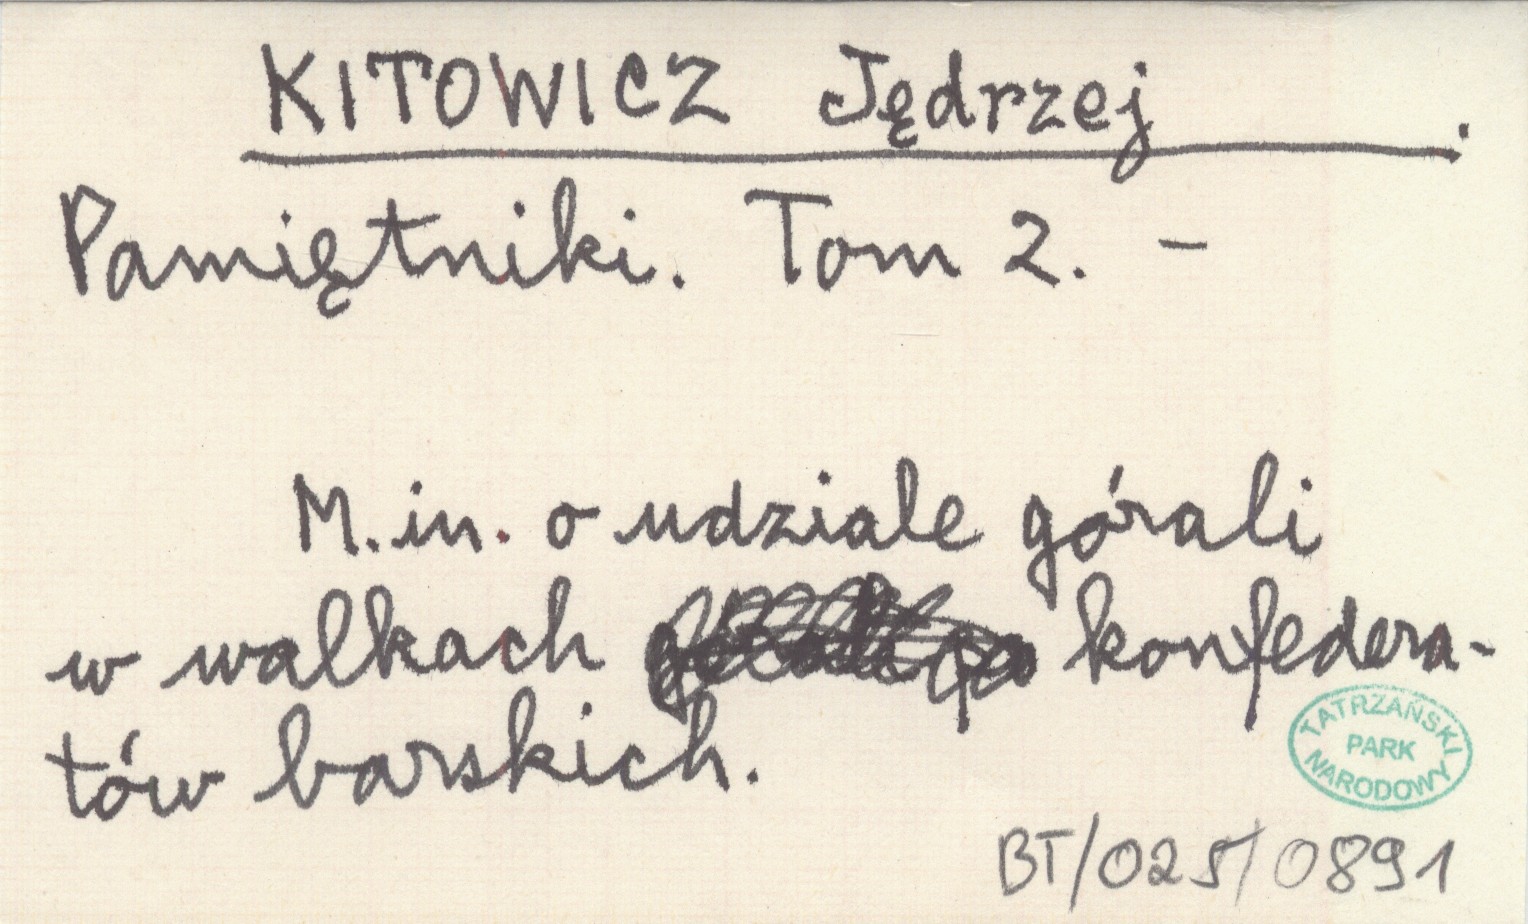 KITOWICZ Jędrzej.
Pamiętniki. Tom 2. –
M.in. o udziale górali
w walkach konfedera-
tów barskich.
TATRZAŃSKI
PARK
NARODOWY
BT/025/0891